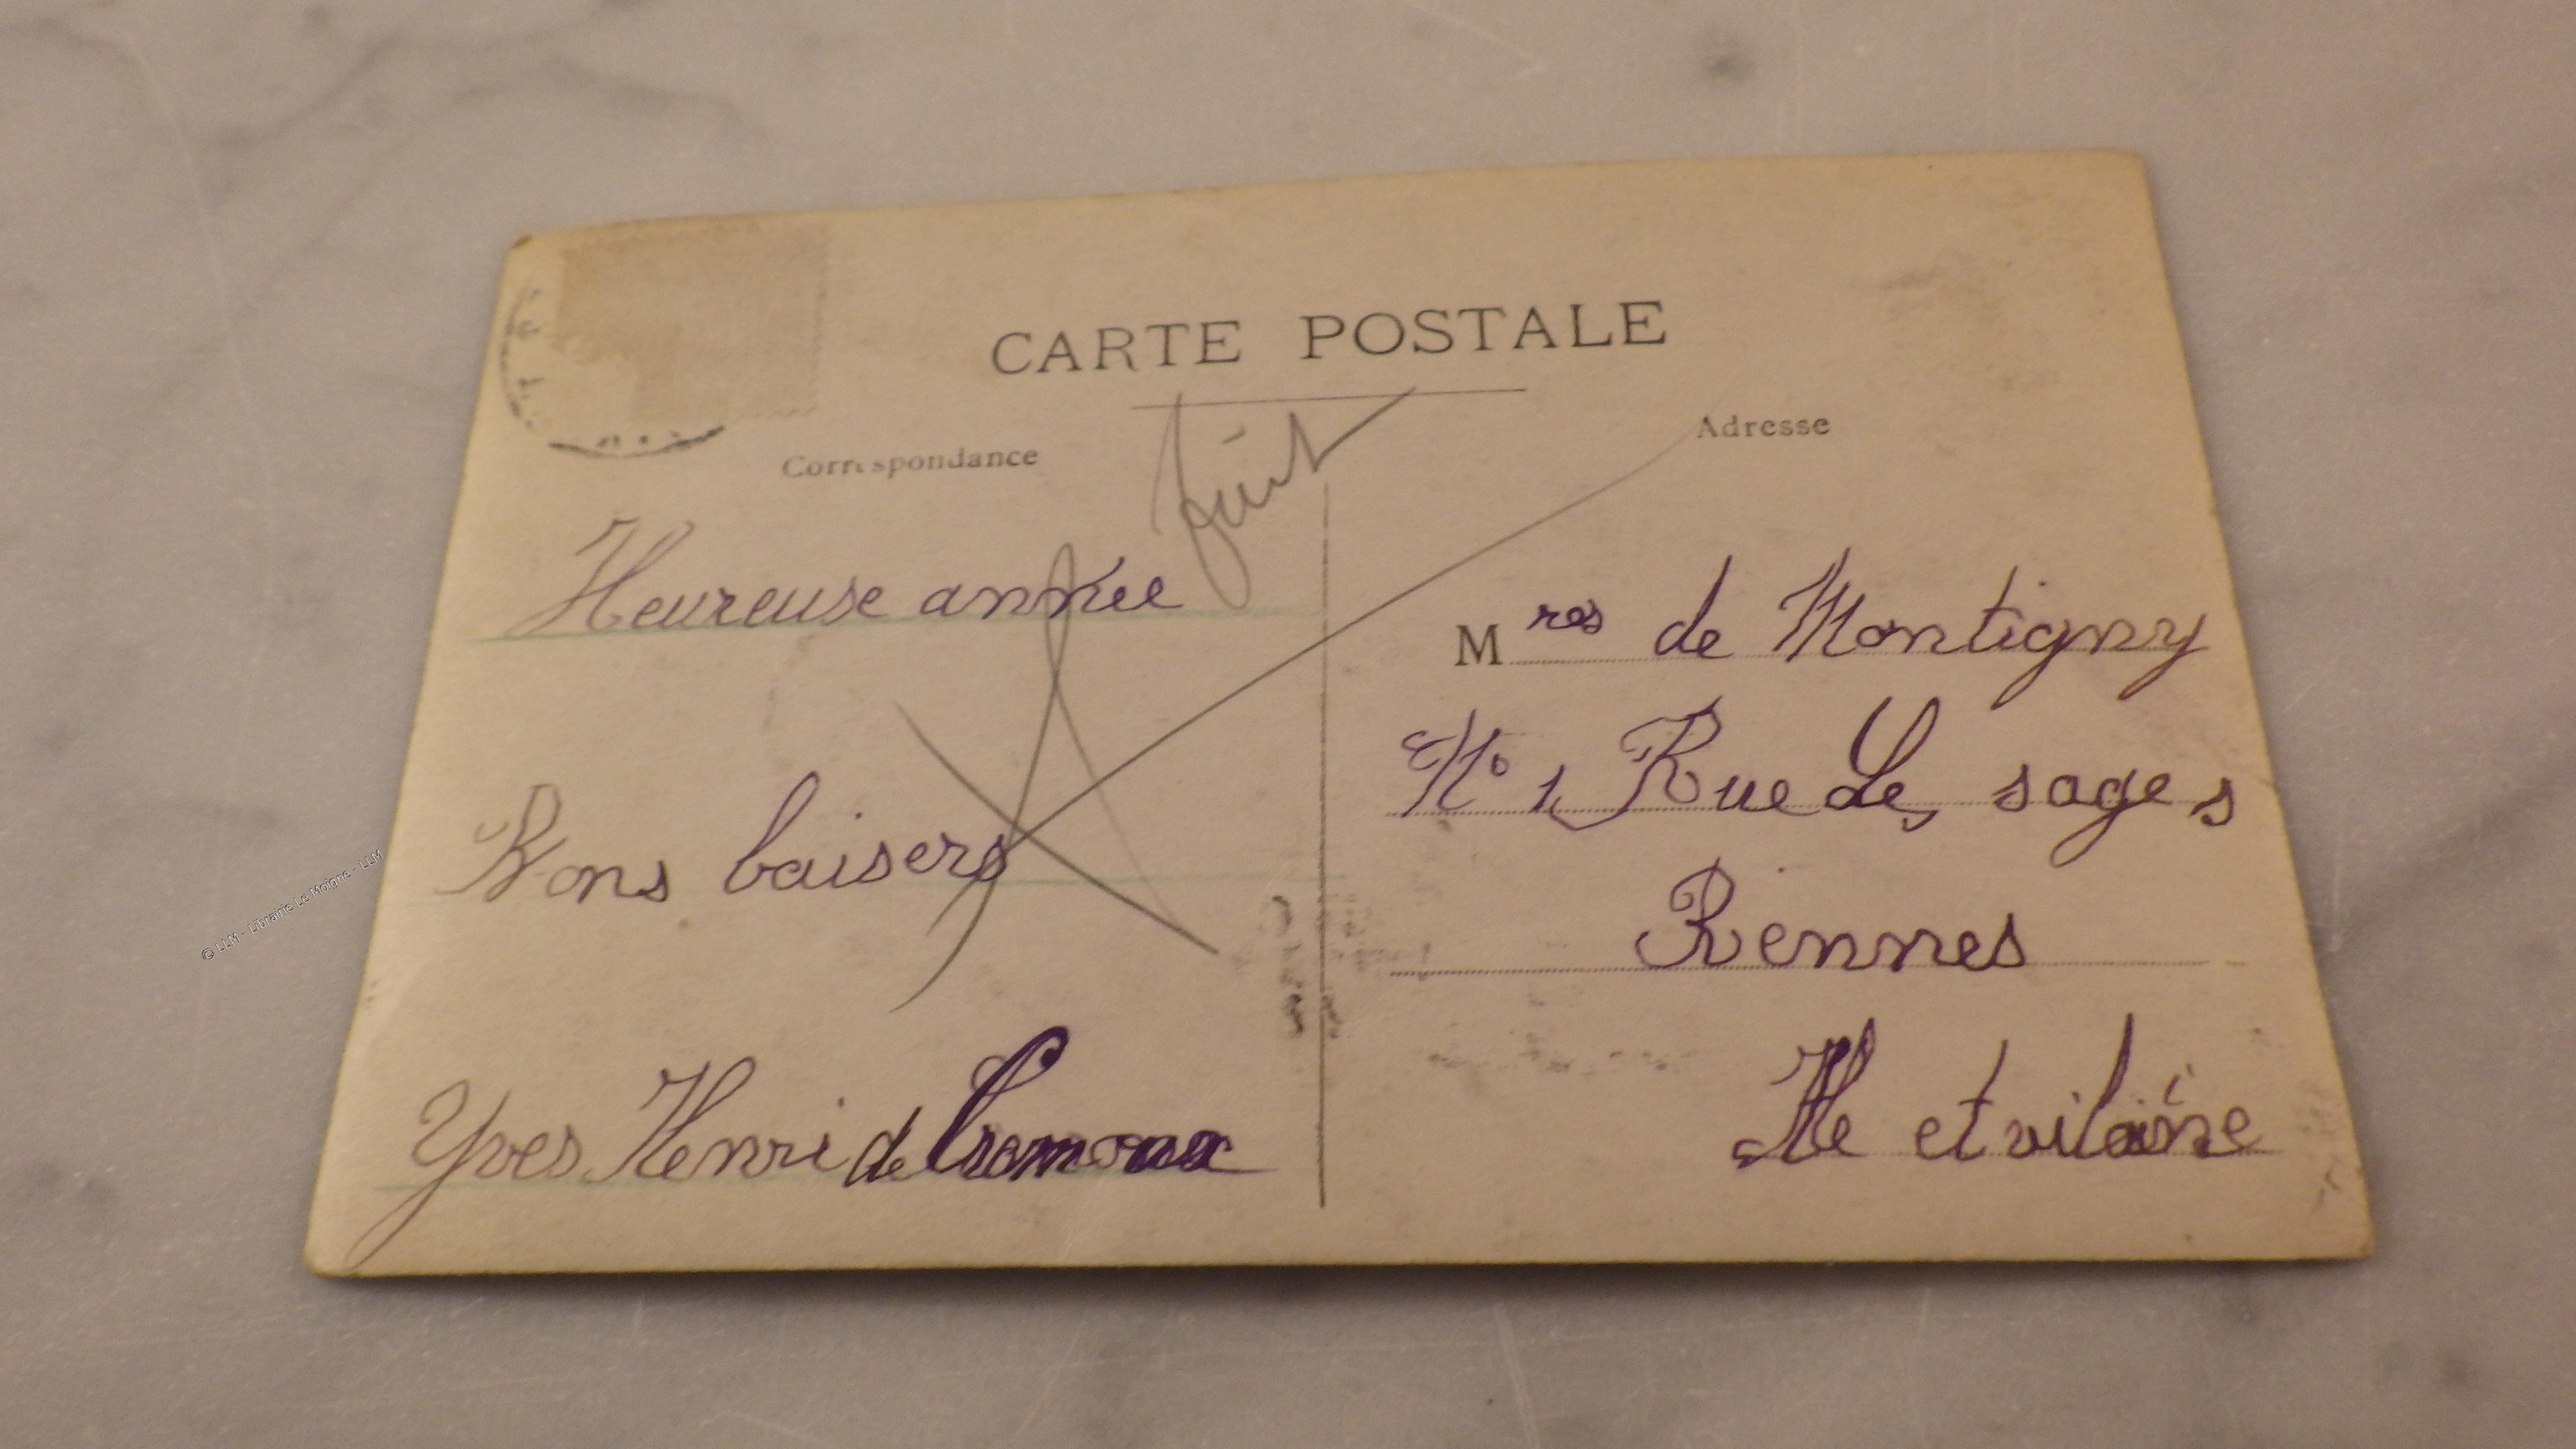 CARTE POSTALE
Correspondance
Adresse
fait
Heureuse année
Bons baisers
Yves Henri de
Mres de Montigny
No 1 Rue Le, sage s
Rennes
Ille et vilaine
© LLM - Librairie Le Moigne - LLM